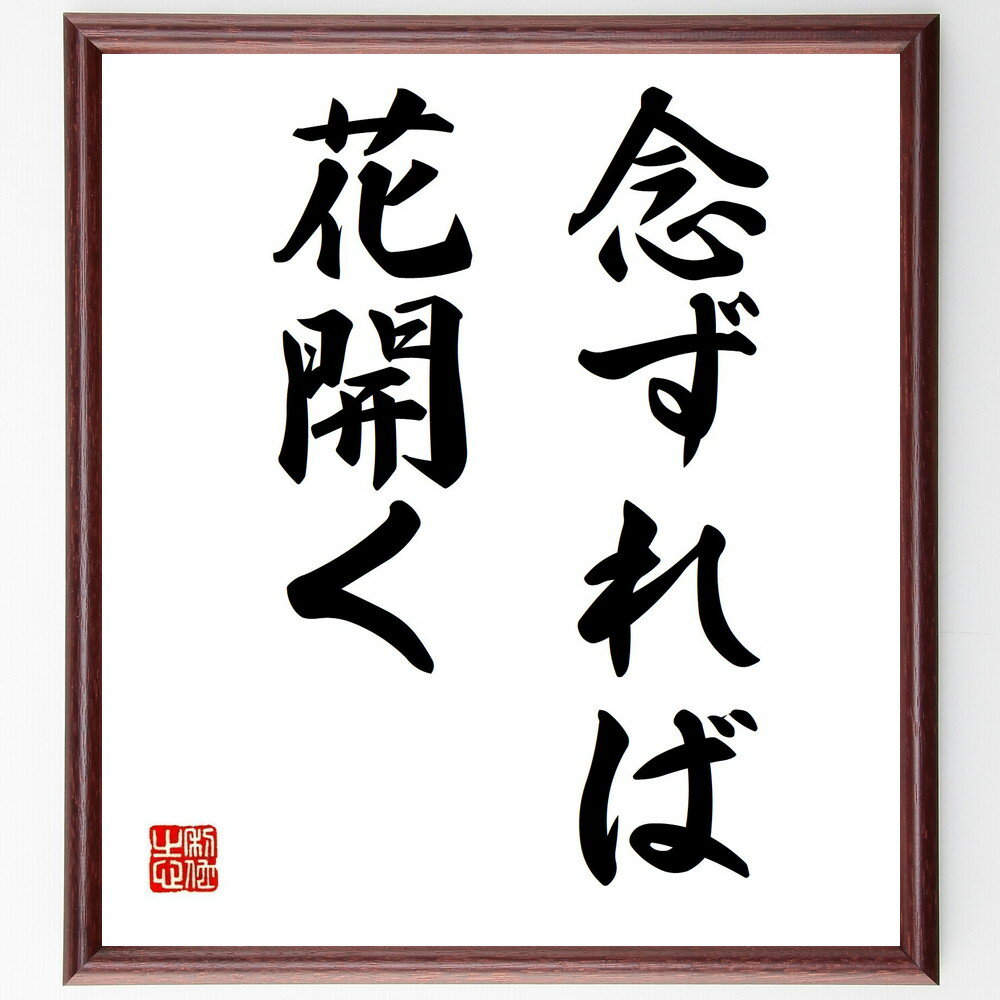 念ずれば
花開く